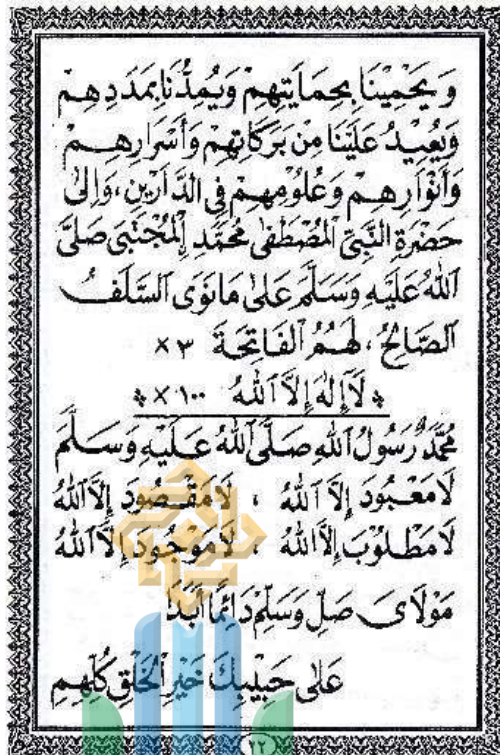 وَيَحْمِيْنَا بِحِمَايَتِهِمْ وَيُمِدُّنَا بِمَدَدِهِمْ
وَيُعِيْدُ عَلَيْنَا مِنْ بَرَكَاتِهِمْ وَأَسْرَارِهِمْ
وَأَنْوَارِهِمْ وَعُلُوْمِهِمْ فِي الدَّارَيْنِ، وَإِلَىٰ
حَضْرَةِ النَّبِيِّ الْمُصْطَفَىٰ مُحَمَّدِ اِلْمُجْتَبَىٰ صَلَّىٰ
اللهُ عَلَيْهِ وَسَلَّمَ عَلَىٰ مَانَوَى السَّلَفُ
الصَّالِحُ، لَهُمُ الْفَاتِحَةَ ٣ ×
لَاإِلٰهَ إِلَّا اللهُ ١٠٠ ×
مُحَمَّدٌ رَسُوْلُ اللهِ صَلَّى اللهُ عَلَيْهِ وَسَلَّمَ
لَامَعْبُوْدَ إِلَّا اللهُ ، لَامَقْصُوْدَ إِلَّا اللهُ
لَامَطْلُوْبَ إِلَّا اللهُ ، لَامَوْجُوْدَ إِلَّا اللهُ
مَوْلَايَ صَلِّ وَسَلِّمْ دَائِمًا أَبَدًا
عَلَىٰ حَبِيْبِكَ خَيْرِ الْخَلْقِ كُلِّهِمِ
٢٢